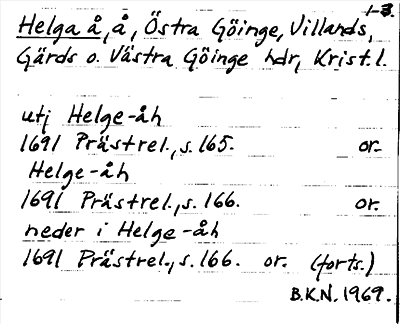 1-3.
Helga å, å, Östra Göinge, Villands,
Gärds o. Västra Göinge hdr, Krist. l.
utj Helge-åh
1691 Prästrel., s. 165. or.
Helge-åh
1691 Prästrel., s. 166. or.
neder i Helge-åh
1691 Prästrel., s. 166. or. (forts.)
B.K.N. 1969.